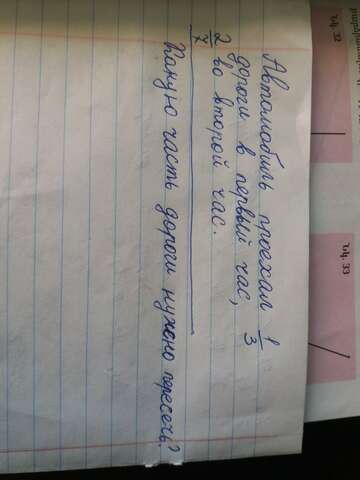 Автомобиль проехал 1/3
дороги в первый час,
2/7 во второй час.
Какую часть дороги нужно пересечь?